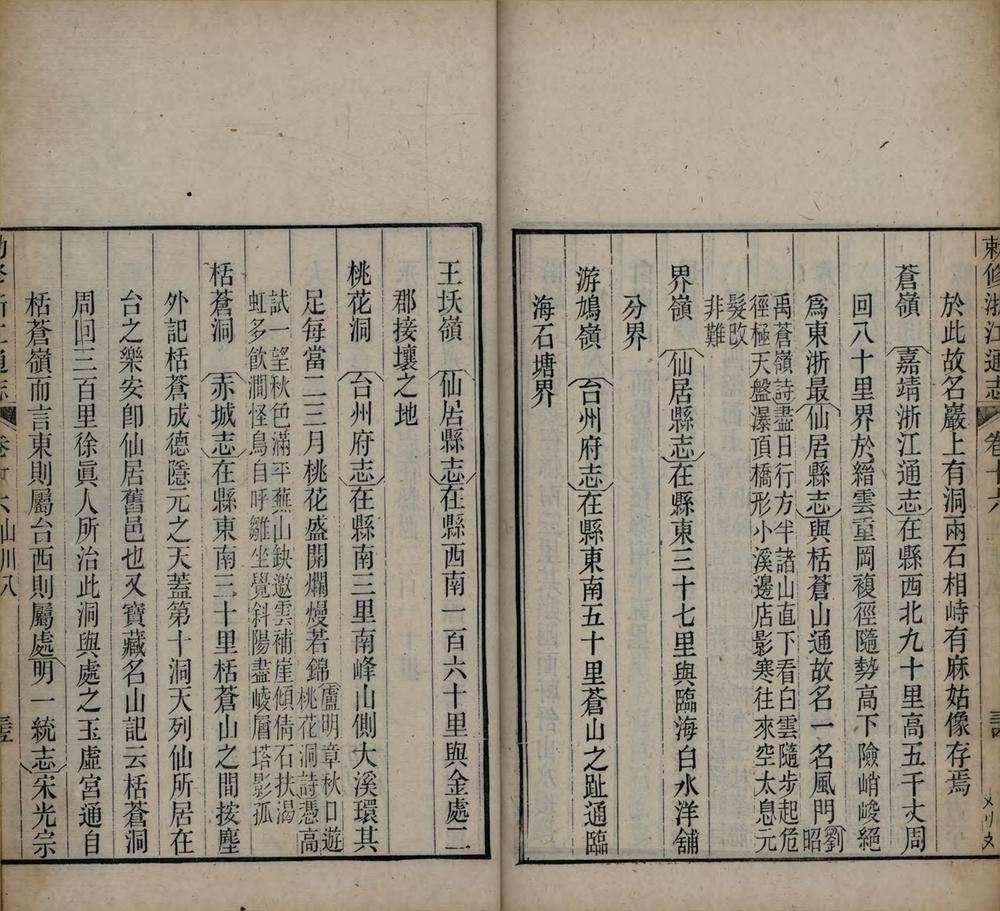 敕修浙江通志 卷十六
於此故名巖上有洞兩石相峙有麻姑像存焉
蒼嶺 嘉靖浙江通志在縣西北九十里高五千丈周
回八十里界於縉雲重岡複徑隨勢高下險峭峻絕
爲東浙最仙居縣志與栝蒼山通故名一名風門劉昭
禹蒼嶺詩盡日行方半諸山直下看白雲隨步起危
徑極天盤瀑頂橋形小溪邊店影寒往來空太息元
髮改
非難
界嶺 仙居縣志在縣東三十七里與臨海白水洋舖
分界
游鳩嶺 台州府志在縣東南五十里蒼山之趾通臨
海石塘界
王圫嶺 仙居縣志在縣西南一百六十里與金處二
郡接壤之地
桃花洞 台州府志在縣南三里南峰山側大溪環其
足每當二三月桃花盛開爛熳若錦
盧明章秋日遊
桃花洞詩憑高
試一望秋色滿平蕪山缺邀雲補崖傾倩石扶渴
虹多飲澗怪鳥自呼雛坐覺斜陽盡崚層塔影孤
栝蒼洞 赤城志在縣東南三十里栝蒼山之間按塵
外記栝蒼成德隱元之天蓋第十洞天列仙所居在
台之樂安卽仙居舊邑也又寶藏名山記云栝蒼洞
周回三百里徐眞人所治此洞與處之玉虛宮通自
栝蒼嶺而言東則屬台西則屬處明一統志宋光宗
勅修浙江通志 卷十六 山川八